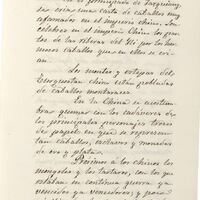 el principado de Turquian,
se cria una casta de caballos muy
afamados en el imperio chino. Son
celebres en el imperio Chino los prados
de las riberas del Ili por los hermosos
caballos que en ellos se
crian.
Los montes y estepas del
Turquestan chino estan pobladas
de caballos montaraces
En la China se acostumbra
quemar con los cadaveres de
los principales personajes trozos
de papel en que se representan
caballos, vestidos y monedas
de oro y plata.
Proximos á los chinos los
mongoles y los tartaros, con los que
estaban en continua guerra ya
vencidos ya vencedores; y por